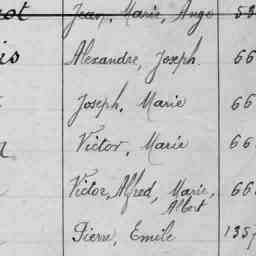 ot Jean, Marie, Ange 58
is Alexandre, Joseph 66
Joseph, Marie 66
Victor, Marie 66
Victor, Alfred, Marie, 66
Albert
Pierre, Emile 1357